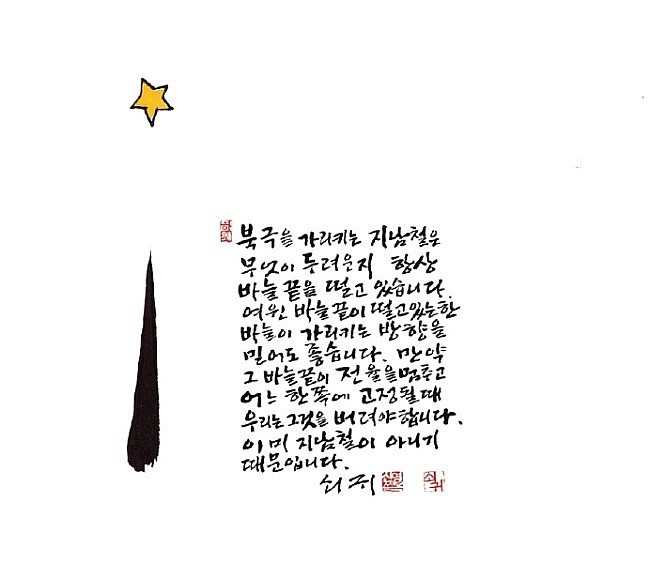 북극을 가리키는 지남철은
무엇이 두려운지 항상
바늘 끝을 떨고 있습니다.
여윈 바늘 끝이 떨고있는한
바늘이 가리키는 방향을
믿어도 좋습니다. 만약
그 바늘끝이 전율을 멈추고
어느 한쪽에 고정될 때
우리는 그것을 버려야 합니다.
이미 지남철이 아니기
때문입니다.
쇠귀